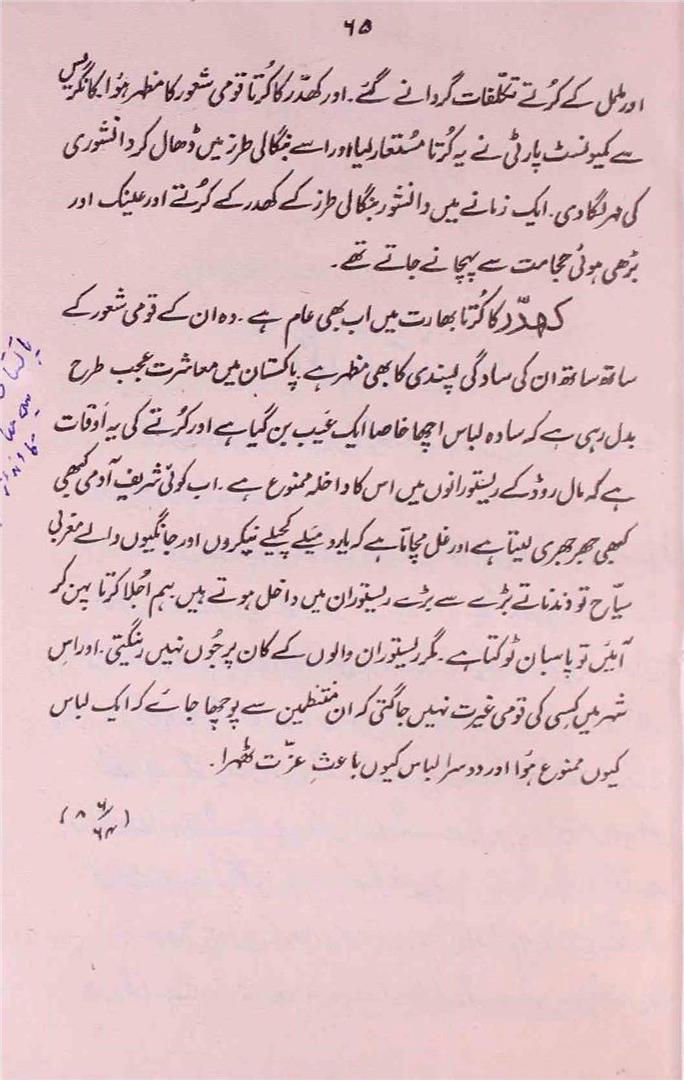 ۶۵
اور ململ کے کرُتے تکلّفات گردانے گئے۔ اور کھدّر کا کُرتا قومی شعور کا مظہر ہوُا۔ کانگریس
سے کمیونسٹ پارٹی نے یہ کُرتا مُستعار لیا اور اسے بنگالی طرز میں ڈھال کر دانشوری
کی مہر لگا دی۔ ایک زمانے میں دانشور بنگالی طرز کے کھدر کے کرُتے اور عینک اور
بڑھی ہوئی حجامت سے پہچانے جاتے تھے۔
کھدّر کا کُرتا بھارت میں اب بھی عام ہے۔ وہ ان کے قومی شعور کے
ساتھ ساتھ ان کی سادگی پسندی کا بھی مظہر ہے پاکستان میں معاشرت عجب طرح
بدل رہی ہے کہ سادہ لباس اچھا خاصا ایک عَیب بن گیا ہے اور کرُتے کی یہ اَوقات
ہے کہ مال روڈ کے ریستورانوں میں اس کا داخلہ ممنوع ہے۔ اب کوئی شریف آدمی کبھی
کبھی جھرجھری لیتا ہے اور غل مچاتا ہے کہ یارو میَلے کچیلے نیکروں اور جانگیوں والے مغربی
سیّاح تو دندناتے بڑے سے بڑے ریستوران میں داخل ہوتے ہیں ہم اُجلا کرتا پہن کر
آئیں تو پاسبان ٹوکتا ہے۔ مگر ریستوران والوں کے کان پر جُوں نہیں رینگتی۔ اور اس
شہر میں کِسی کی قومی غیرت نہیں جاگتی کہ ان منتظمین سے پوچھا جائے کہ ایک لباس
کیوں ممنوع ہُوا اور دوسرا لباس کیوں باعثِ عزّت ٹھہرا۔